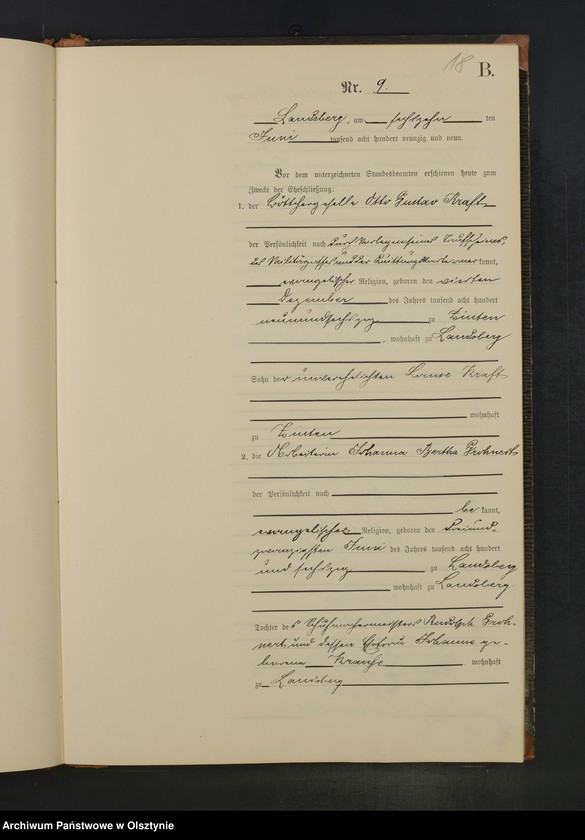 18
B.
Nr. 9.
Landsberg, am sechszehn ten
Juni tausend acht hundert neunzig und neun.
Vor dem unterzeichneten Standesbeamten erschienen heute zum
Zwecke der Eheschließung:
1. der Böttchergeselle Otto Gustav Kraft
der Persönlichkeit nach durch Vorlegen seines Taufscheines,
des Militärpasses und der Quittungskarte aner kannt,
evangelischer Religion, geboren den vierten
Dezember des Jahres tausend acht hundert
neunundsechszig zu Zinten
, wohnhaft zu Landsberg
Sohn der unverehelichten Kraft
wohnhaft
zu Zinten
2. die Arbeiterin Johanna Bertha Grohnert
der Persönlichkeit nach
be kannt,
evangelischer Religion, geboren den dreiund-
zwanzigsten Juni des Jahres tausend acht hundert
und sechszig zu Landsberg
wohnhaft zu Landsberg
Tochter des Schuhmachermeisters Rudolph Groh-
nert, und dessen Ehefrau Johanna ge-
borene Krause wohnhaft
zu Landsberg
Archiwum Państwowe w Olsztynie